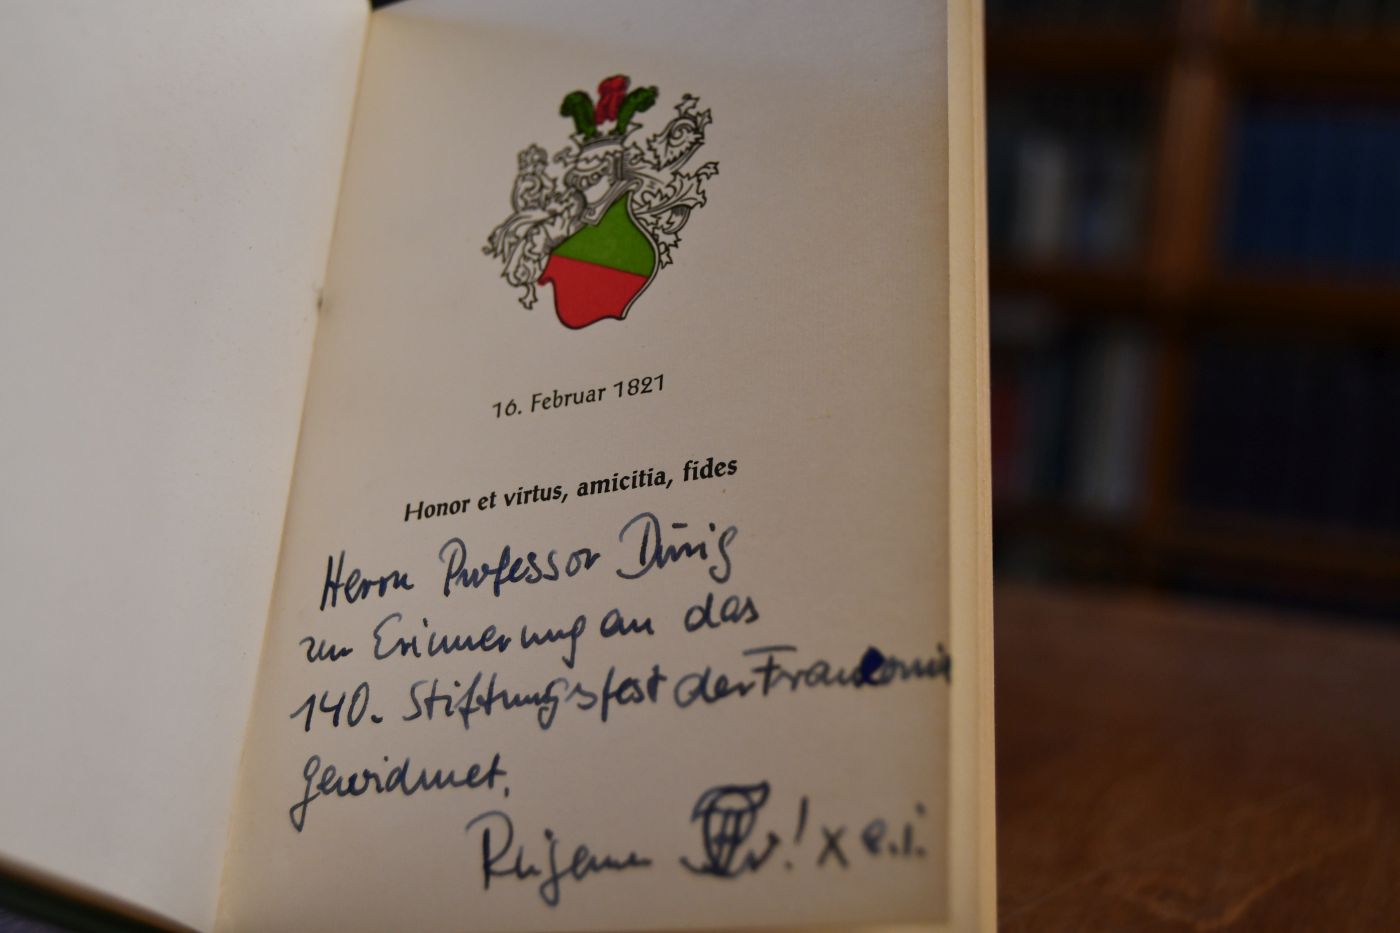 16. Februar 1821
Honor et virtus, amicitia, fides
Herrn Professor Dürig
zur Erinnerung an das
140. Stiftungsfest der Franconia
gewidmet.
! x e.i.